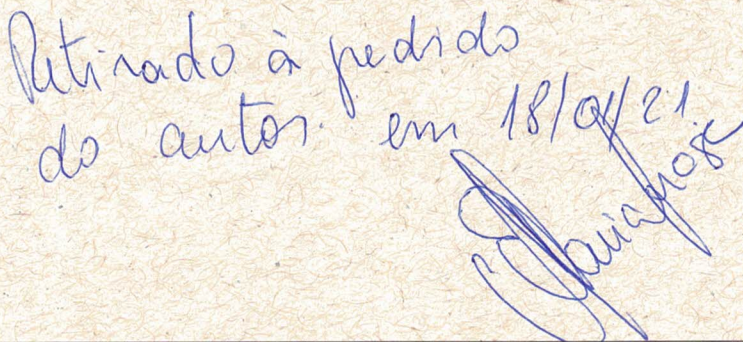 Retirado à pedido
do autor. em 18/01/21.